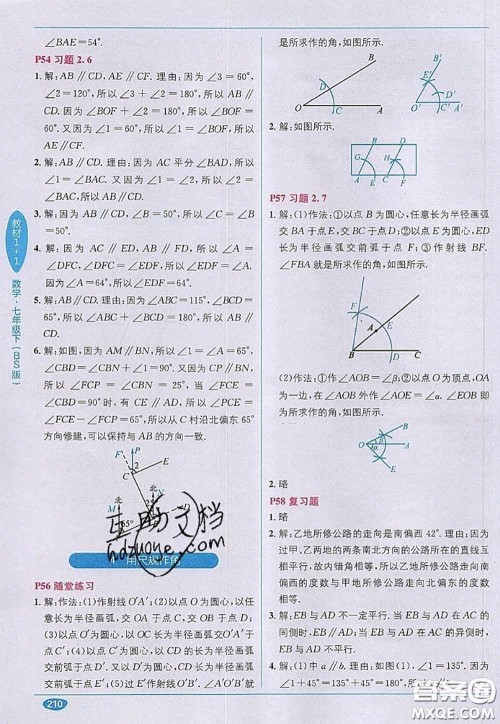 ∠BAE=54°.
P54 习题 2.6
1. 解:AB∥CD,AE∥CF. 理由:因为∠3=60°,
∠2=120°,所以∠3+∠2=180°,所以 AB∥
CD. 因为∠BOF+∠2=180°,所以∠BOF=
60°. 又因为∠1=60°,所以∠1=∠BOF,所以
AE∥CF.
2. 解:AB∥CD. 理由:因为 AC 平分∠BAD,所以
∠1=∠BAC. 又因为∠1=∠2,所以∠BAC=
∠2,所以 AB∥CD.
3. 解:因为 AB∥CD,所以∠B=∠C=50°. 因为
∠D=50°,所以∠C=∠D,所以 AC∥BD.
4. 解:因为 AC∥ED,AB∥FD,所以∠A=
∠DFC,∠DFC=∠EDF,所以∠A=∠EDF=
65°.
5. 解:因为∠BAC=115°,∠BCA=65°,所以
∠BAC+∠BCA=180°,所以 AB∥CD.
6. 解:如图,因为 AM∥BN,所以∠1=∠A=65°,
∠CBD=∠CBN+∠1=90°. 又因为 CP∥BN,
所以∠PCF=∠CBN=25°. 又因为当∠CBD=
∠ECB=90°时,有 CE∥AB,所以∠2=180°-
∠PCF-∠ECB=65°,所以从 C 村沿北偏东 65°
方向修建,可以保持与 AB 的方向一致.
F
P
E
C
2
北
北
M
N
用尺规作角
P56 随堂练习
1. 解:作法:(1)作射线 O′A′;(2)以点 O 为圆心,以任
意长为半径画弧,交 OA 于点 C,交 OB 于点
D;(3)以点 O′为圆心,以 OC 长为半径画弧,交 O′A′
于点 C′;(4)以点 C′为圆心,以 CD 长为半径画弧
交前弧于点 D′. 又以点 C′为圆心,以 CD 长为半径画弧
交前弧于点 E′;(5)过点 D′作射线 O′B′,∠A′O′B′就
教材1+1
数学·七年级下(BS版)
210
是所求作的角,如图所示.
B
D
O
C
A
B′
D′
O′
C′
A′
2. 解:如图所示.
B
D
G
H
A
E
C
F
P57 习题 2.7
1. 解:(1)作法:①以点 B 为圆心,任意长为半径画弧
交 PA 于点 E;②以点 E 为圆心,以 PA 与前弧的交点间
长为半径画弧交前弧于点 F;③作射线 BF.
∠EBF 即为所求作的角,如图所示.
F
A
E
B
(2)作法:①作∠AOB=∠β;②以点 O 为顶点,OA
为一边,在∠AOB 的外部作∠AOE=∠α. ∠EOB
即为所求作的角,如图所示.
E
O
A
B
2. 略
3. 略
P58 复习题
1. 略
2. 解:乙地所修公路的走向是南偏西 42°. 理由:因为
过甲、乙两地的两条南北方向的公路所在的直线互
相平行,故内错角相等,所以乙地所修公路走向南
偏西的度数与甲地所修公路走向北偏东的度数
相等.
3. 解:EB 与 AD 不一定平行. 当 EB 与 AD 在 AC 的
同侧时,EB∥AD;当 EB 与 AD 在 AC 的异侧时,
EB 与 AD 不平行.
4. 解:(1)图中 a∥b. 理由:如图(1),∠1=135°. 因为
∠1+∠2=180°,∠2=45°,所以∠1=135°,
互助文档
hdzuoye.com
答案圈
MXQE.COM